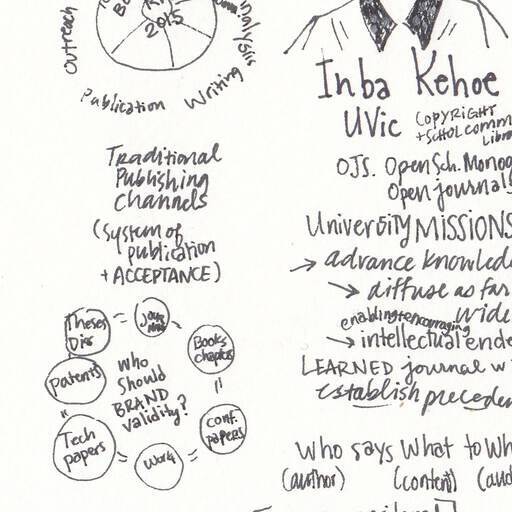 2015
Outreach
Analysis
Publication
Writing
Traditional
Publishing
channels
(system of
publication
+ ACCEPTANCE)
Theses
Diss
Books
chapters
Patents
who
should
BRAND
validity?
conf.
papers
Tech
papers
Work
Inba Kehoe
UVic
COPYRIGHT
+ SCHOL COMM
Libra
OJS. Open Sch. Monog
Open journals
University MISSIONS
→ advance knowled
→ diffuse as far
wide
enabling + encouraging
→ intellectual ende
LEARNED journal w
establish preceden
who says what to wh
(author) (content) (aud